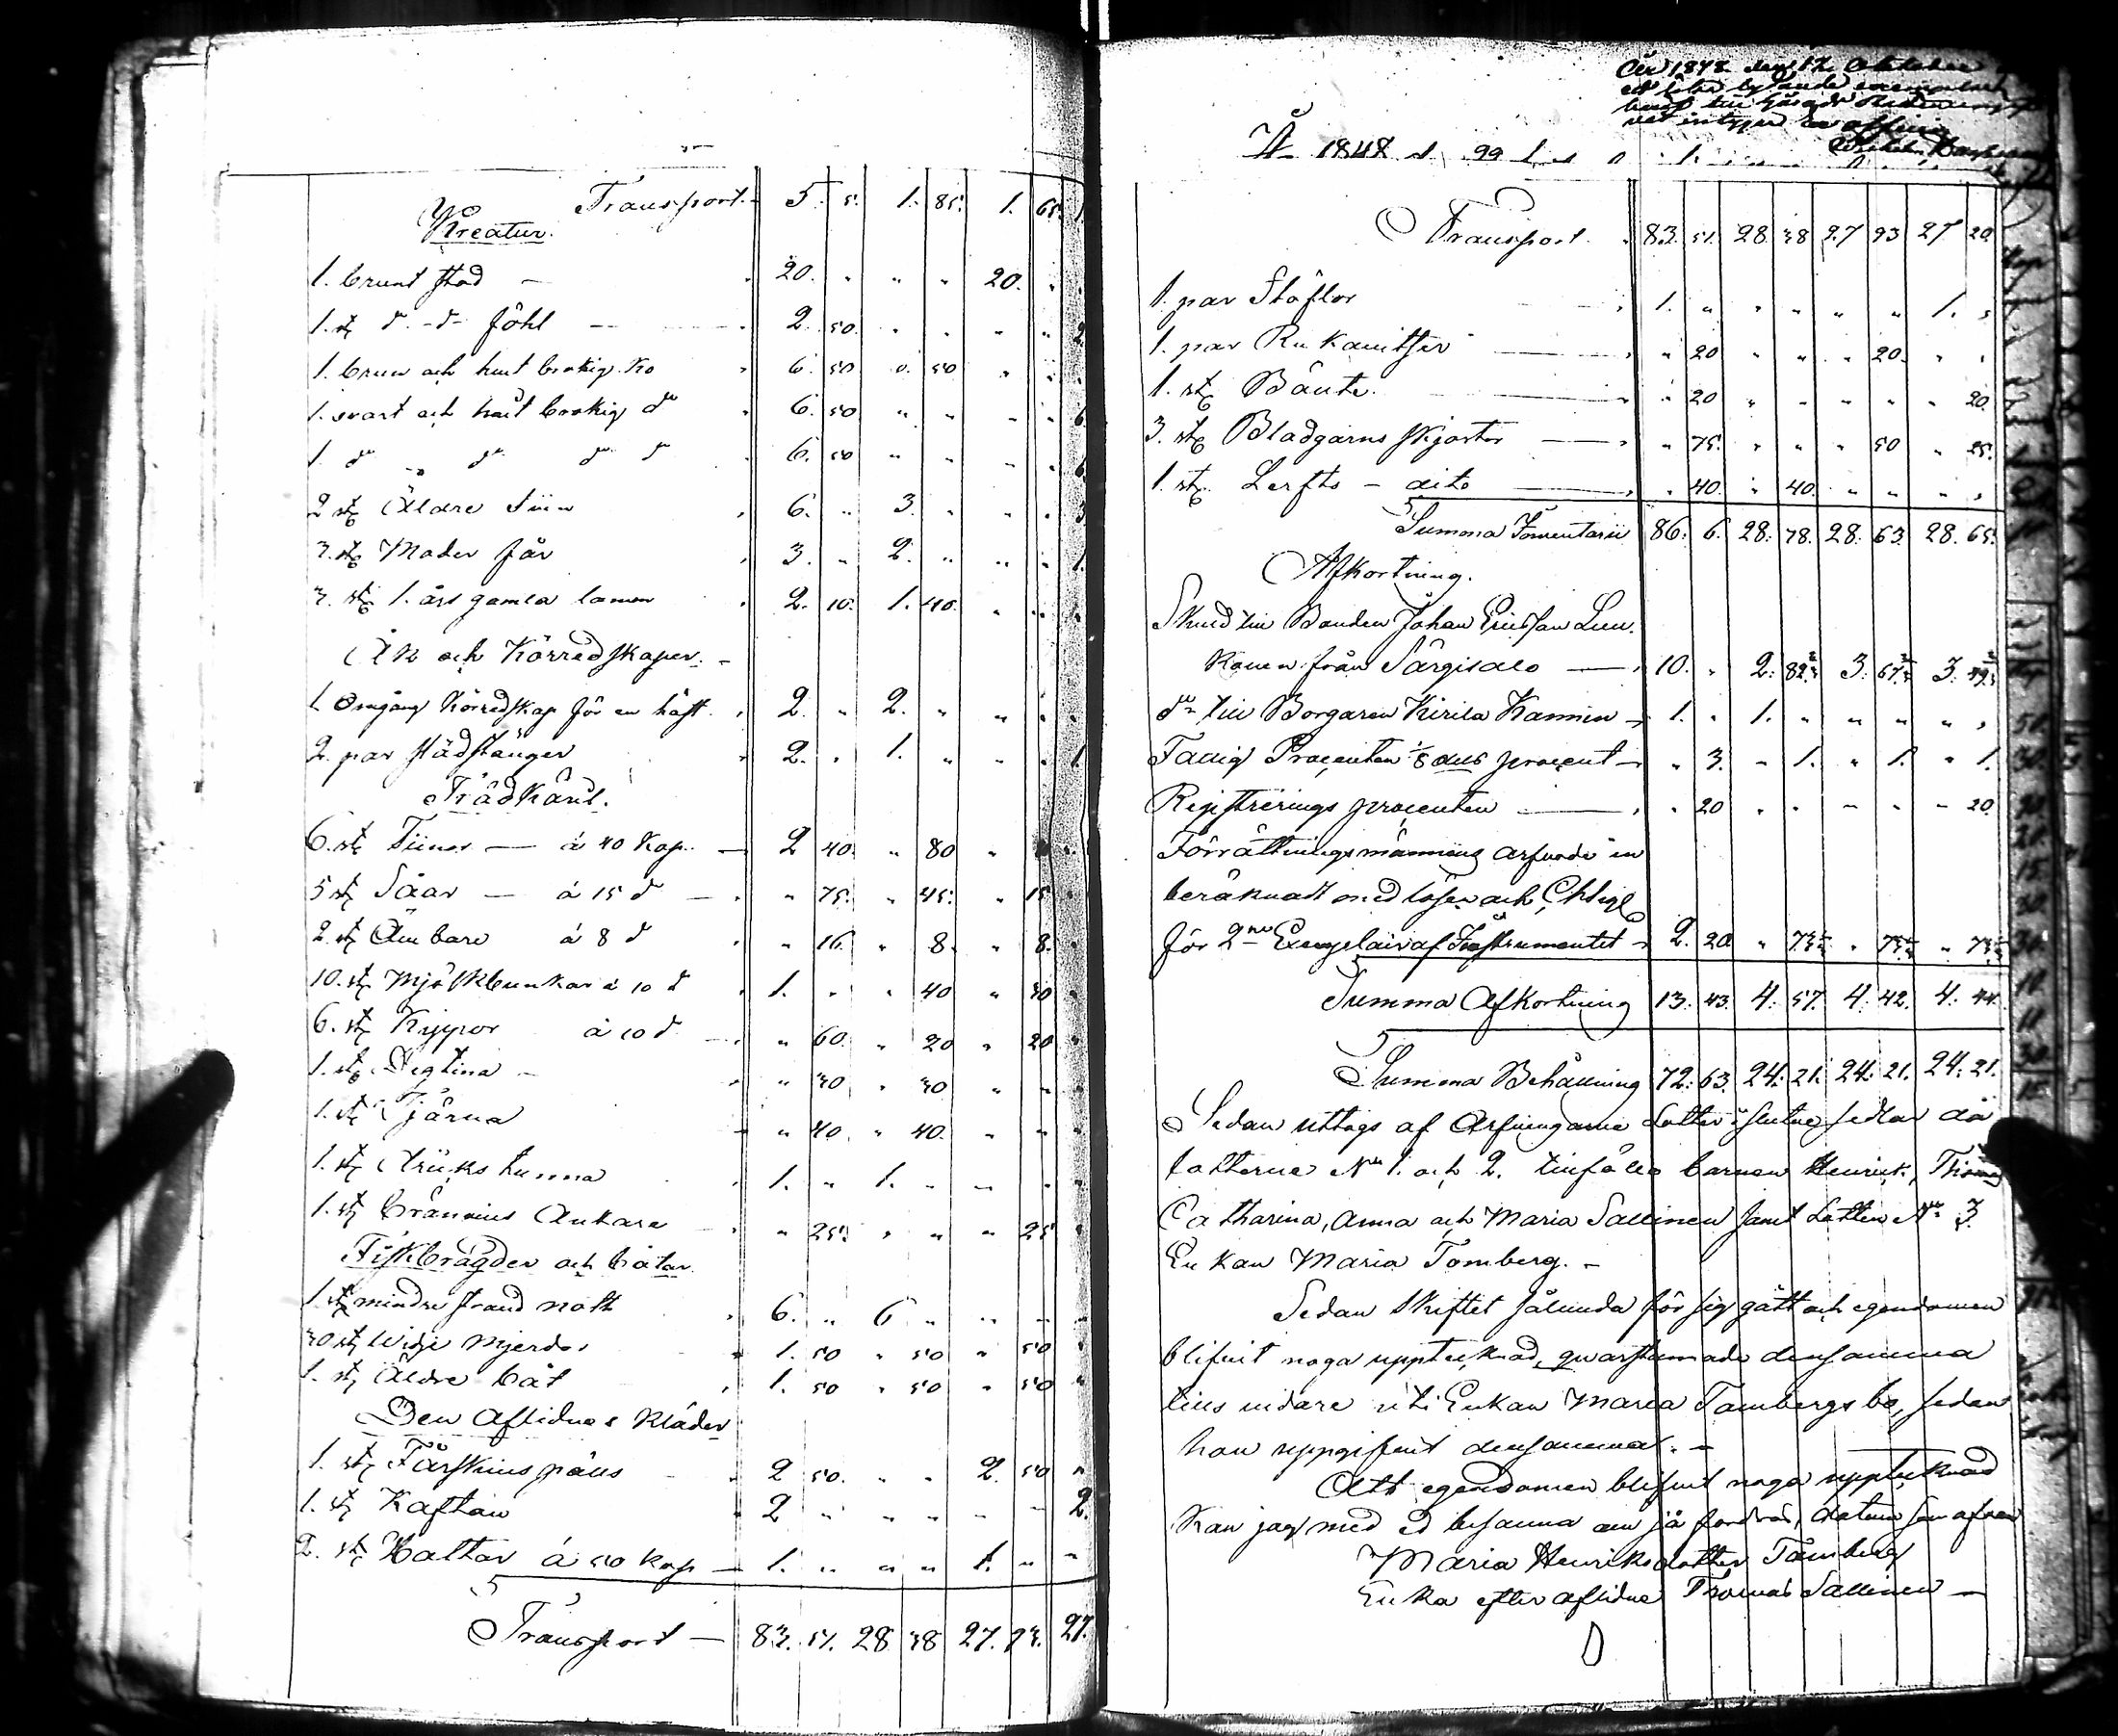 Transport 5. 5. 1. 85. 1. 65. 1
Kreatur.
1. brunt stod — 20. " " " 20. "
1. st d:o d:o föhl — 2. 50. " " " " 2
1. brun och hvit brokig Ko 6. 50 6. 50 " "
1. svart och hvit brokig d:o 6. 50 " " " " 6
1 d:o " d:o d:o d:o 6. 50 " " " " 6
2 st Äldre Svin 6. " 3. " " " 3
3. st Moder får 3. " 2. " " " 1.
3. st 1. års gamla lamm 2. 10. 1. 40. " "
Åk och Körredskaper. -
1. Omgång Körredskap för en häst. 2. " 2. " " "
2. par slädstänger 2. " 1. " " " 1
Trädkäril.
6. st Tiinor — á 40 Kop. — 2 40. " 80 "
5 st Såar — á 15 d:o — " 75. " 45. " 15
2. st Ämbare á 8 d:o " 16. " 8. " 8.
10. st Mjölkbunkar á 10 d:o 1. " " 40 " 30
6. st Kyppor á 10 d:o " 60. " 20 " 20
1. st Degtina - " 30 " 30. " "
1. st Tjärna " 40. " 40. " "
1. st Dricks tunna 1. " 1. " " "
1. st brännvins Ankare " 25. " " " 25
Fiskbragder och båtar.
1 st mindre strand noth 6. " 6 " " "
30 st Widje mjerdar 1. 50 " 50 " 50
1. st Äldre båt 1. 50 " 50 " 50
Den Aflidnes Kläder
1. st Fårskins päls 2 50. " " 2. 50 "
1. st Kaftan 2 " " " " " 2.
2. st Hattar á 50 kop — 1. " " " 1. " "
Transport — 83. 51. 28 38 27. 93. 27.
År 1848 den 12 Oktober
ett lika lydande exemplar
År 1848 d.
Transport. 83. 51. 28 38 27 93 27 20
1. par Stöflor 1. " " " " " 1. "
1. par Rukanitser — " 20 " " " 20. " "
1. st Bänte. " 20 " " " " " 20.
3. st Bladgarns skjortor — " 75. " " " 50 " 25.
1. st Lerfts — dito — " 40. " 40. " " " "
Summa Inventarii 86. 6. 28. 78. 28. 63. 28. 65.
Afkortning.
Skuld till Bonden Johan Ericsson Leu-
konen från Särgisalo — 10. " 2. 82 3. 67 3. 49
d:o till Borgaren Kirila Kamnin — 1. " 1. " " " " "
Fattig Procenten 1/8 dels procent — " 3. " 1. " 1. " 1.
Registrerings procenten — " 20 " " " " " 20.
Förrättningsmännens arfvode in
beräknadt med lösen och Chtigl
för 2:ne Exemplair af Instrumentet — 2. 20. " 73 " 73 " 73
Summa Afkortning 13. 43. 4. 57. 4. 42. 4. 44.
Summa Behållning 72. 63. 24. 21. 24. 21. 24. 21.
Sedan uttogs af Arfvingarne Lotter i slutne sedlar då
lotterne N:o 1. och 2. tillföllo barnen Henrick, Thomas
Catharina, Anna och Maria Sallinen samt Lotten N:o 3.
Enkan Maria Tomberg. -
Sedan Skiftet sålunda för sig gått och egendomen
blifvit noga upptecknad, qvarstannade densamma
tills vidare uti Enkan Maria Tombergs bo, sedan
hon uppgifvit densamma. -
Att egendomen blifvit noga upptecknad
kan jag med ed besanna om så fordras, datum som ofvan
Maria Henriksdotter Tomberg
Enka efter aflidne Thomas Sallinen —